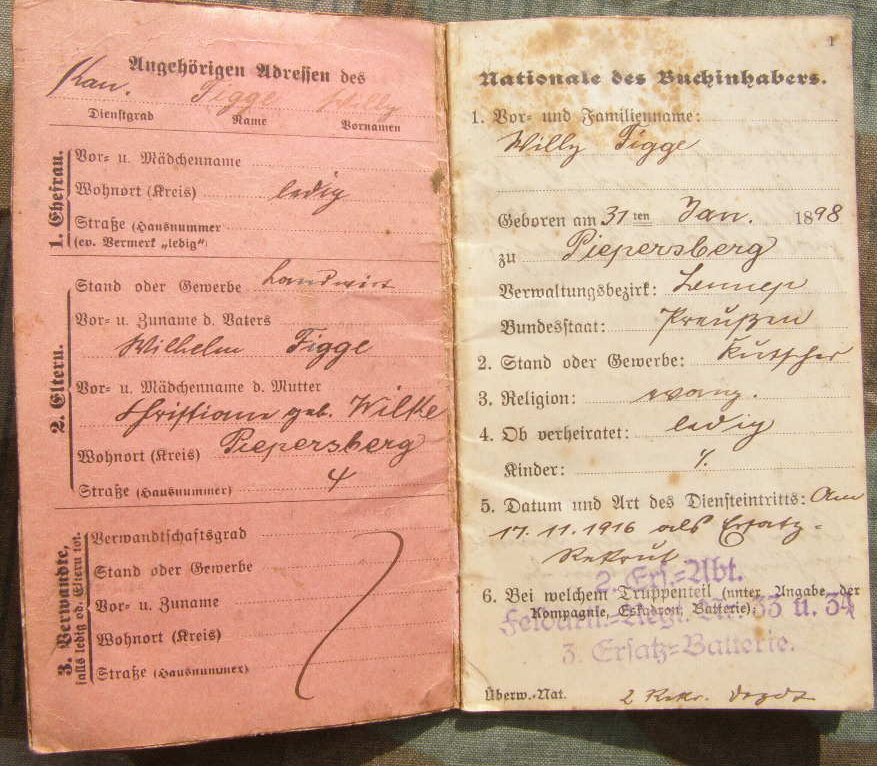 Angehörigen Adressen des
Kan. Figge Willy
Dienstgrad Name Vornamen
1. Ehefrau.
Vor- u. Mädchenname
Wohnort (Kreis) ledig
Straße (Hausnummer)
(ev. Vermerk „ledig“)
2. Eltern.
Stand oder Gewerbe Landwirt
Vor- u. Zuname d. Vaters
Wilhelm Figge
Vor- u. Mädchenname d. Mutter
Christiane geb. Wilke
Wohnort (Kreis) Piepersberg
Straße (Hausnummer) 4
3. Verwandte,
falls ledig od. Eltern tot.
Verwandtschaftsgrad
Stand oder Gewerbe
Vor- u. Zuname
Wohnort (Kreis)
Straße (Hausnummer)
1
Nationale des Buchinhabers.
1. Vor- und Familienname:
Willy Figge
Geboren am 31ten Jan. 1898
zu Piepersberg
Verwaltungsbezirk: Lennep
Bundesstaat: Preußen
2. Stand oder Gewerbe: Kutscher
3. Religion: evang.
4. Ob verheiratet: ledig
Kinder: /.
5. Datum und Art des Diensteintritts: Am
17.11.1916 als Ersatz-
Rekrut
2. Ers.-Abt.
6. Bei welchem Truppenteil (unter Angabe der
Kompagnie, Eskadron, Batterie):
Feldartl.-Regt. Nr. 33 u. 34
3. Ersatz-Batterie.
Überw.-Nat. 2 Rekr. Depot